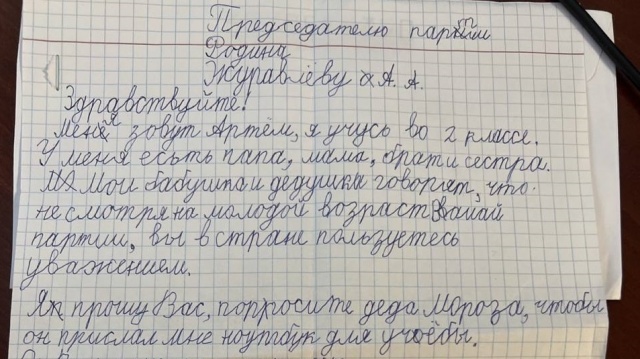 Председателю партии
Родина
Журавлёву А. А.
Здравствуйте!
Меня зовут Артём, я учусь во 2 классе.
У меня есть папа, мама, брат и сестра.
Мои бабушка и дедушка говорят, что
не смотря на молодой возраст
партии, вы в стране пользуетесь
уважением.
Я прошу Вас, попросите деда Мороза, чтобы
он прислал мне ноутбук для учёбы.